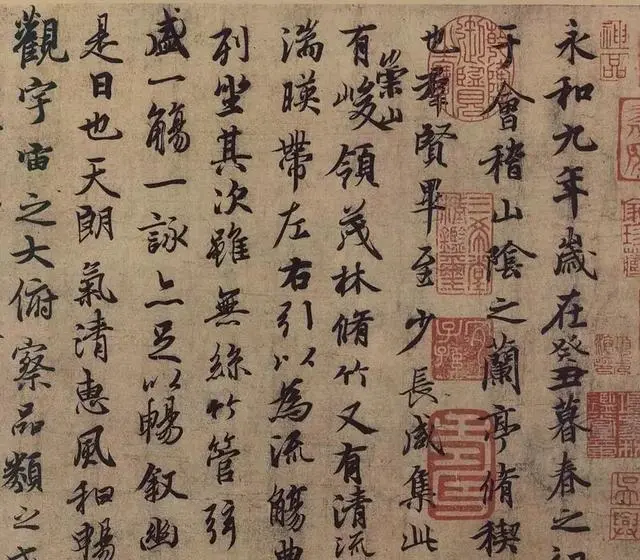 永和九年歲在癸丑暮春之初
于會稽山陰之蘭亭脩禊
也羣賢畢至少長咸集此
有崇山峻領茂林脩竹又有清流
湍暎帶左右引以為流觴曲
列坐其次雖無絲竹管弦
盛一觴一詠亦足以暢叙幽
是日也天朗氣清惠風和暢
觀宇宙之大俯察品類之
神品